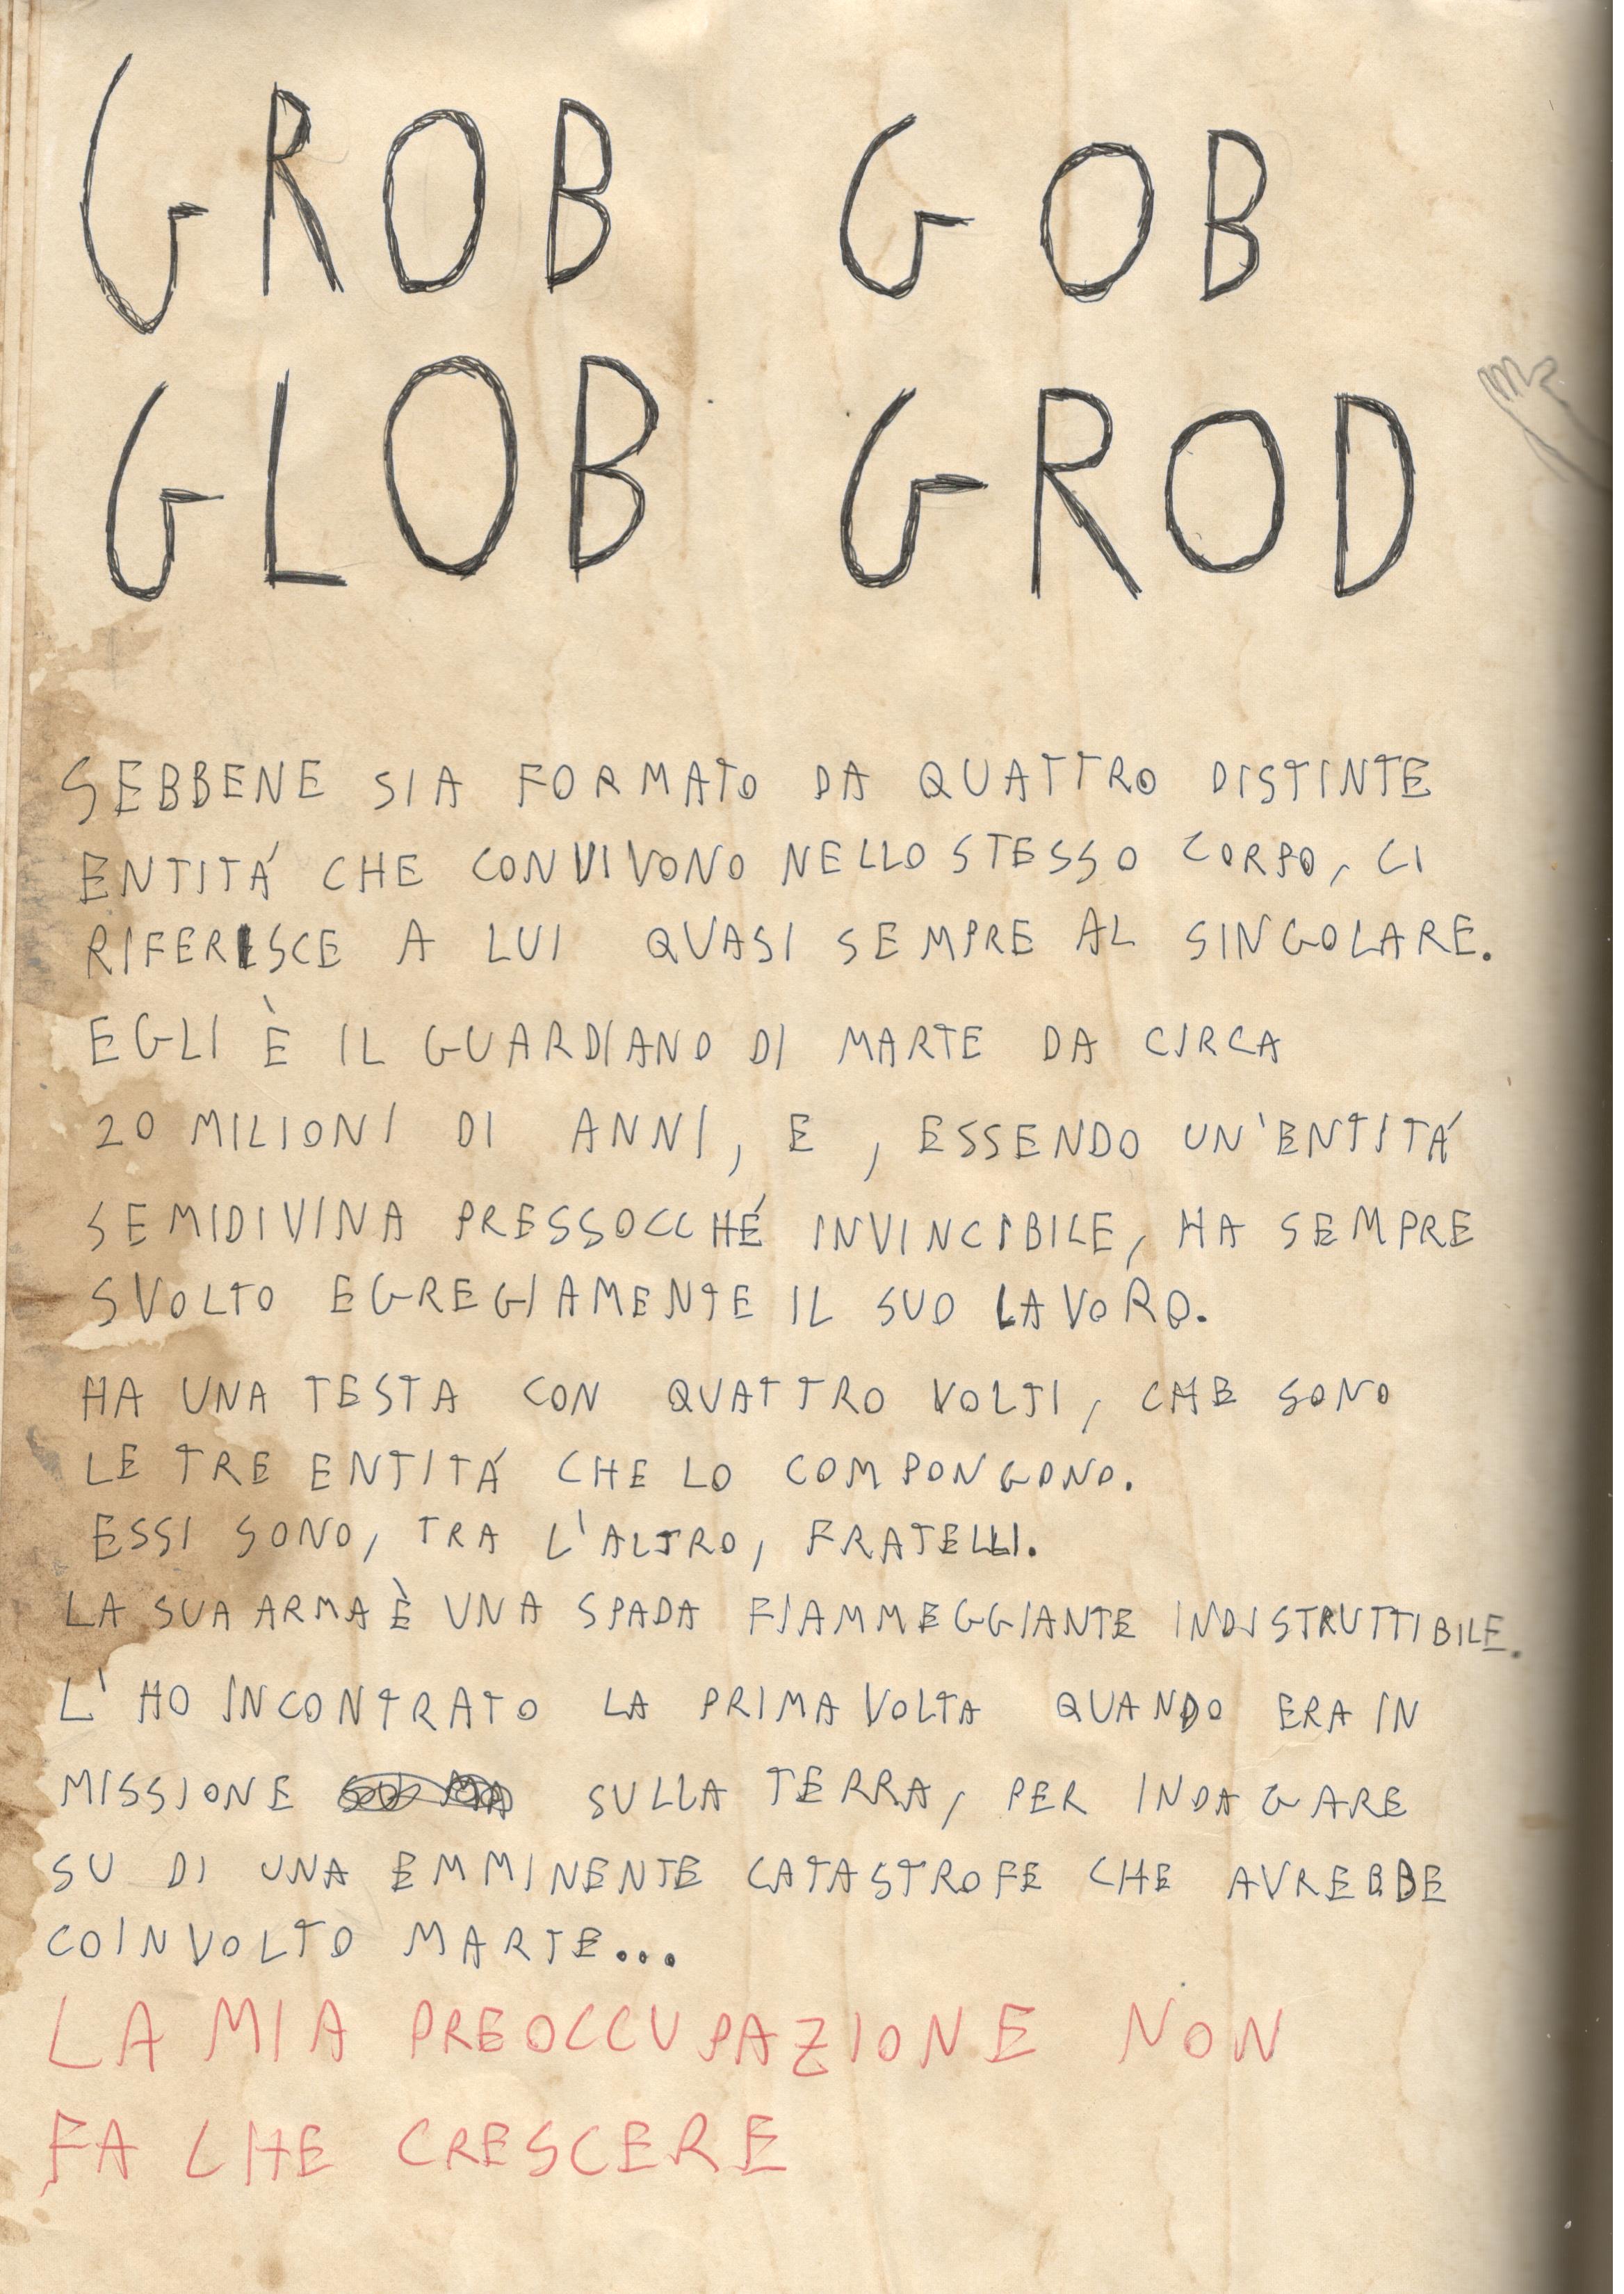 GROB GOB
GLOB GROD
SEBBENE SIA FORMATO DA QUATTRO DISTINTE
ENTITÁ CHE CONVIVONO NELLO STESSO CORPO, CI
RIFERISCE A LUI QUASI SEMPRE AL SINGOLARE.
EGLI È IL GUARDIANO DI MARTE DA CIRCA
20 MILIONI DI ANNI, E, ESSENDO UN'ENTITÁ
SEMIDIVINA PRESSOCCHÉ INVINCIBILE, HA SEMPRE
SVOLTO EGREGIAMENTE IL SUO LAVORO.
HA UNA TESTA CON QUATTRO VOLTI, CHE SONO
LE TRE ENTITÁ CHE LO COMPONGONO.
ESSI SONO, TRA L'ALTRO, FRATELLI.
LA SUA ARMA È UNA SPADA FIAMMEGGIANTE INDISTRUTTIBILE.
L'HO INCONTRATO LA PRIMA VOLTA QUANDO ERA IN
MISSIONE SULLA TERRA, PER INDAGARE
SU DI UNA EMMINENTE CATASTROFE CHE AVREBBE
COINVOLTO MARTE...
LA MIA PREOCCUPAZIONE NON
FA CHE CRESCERE